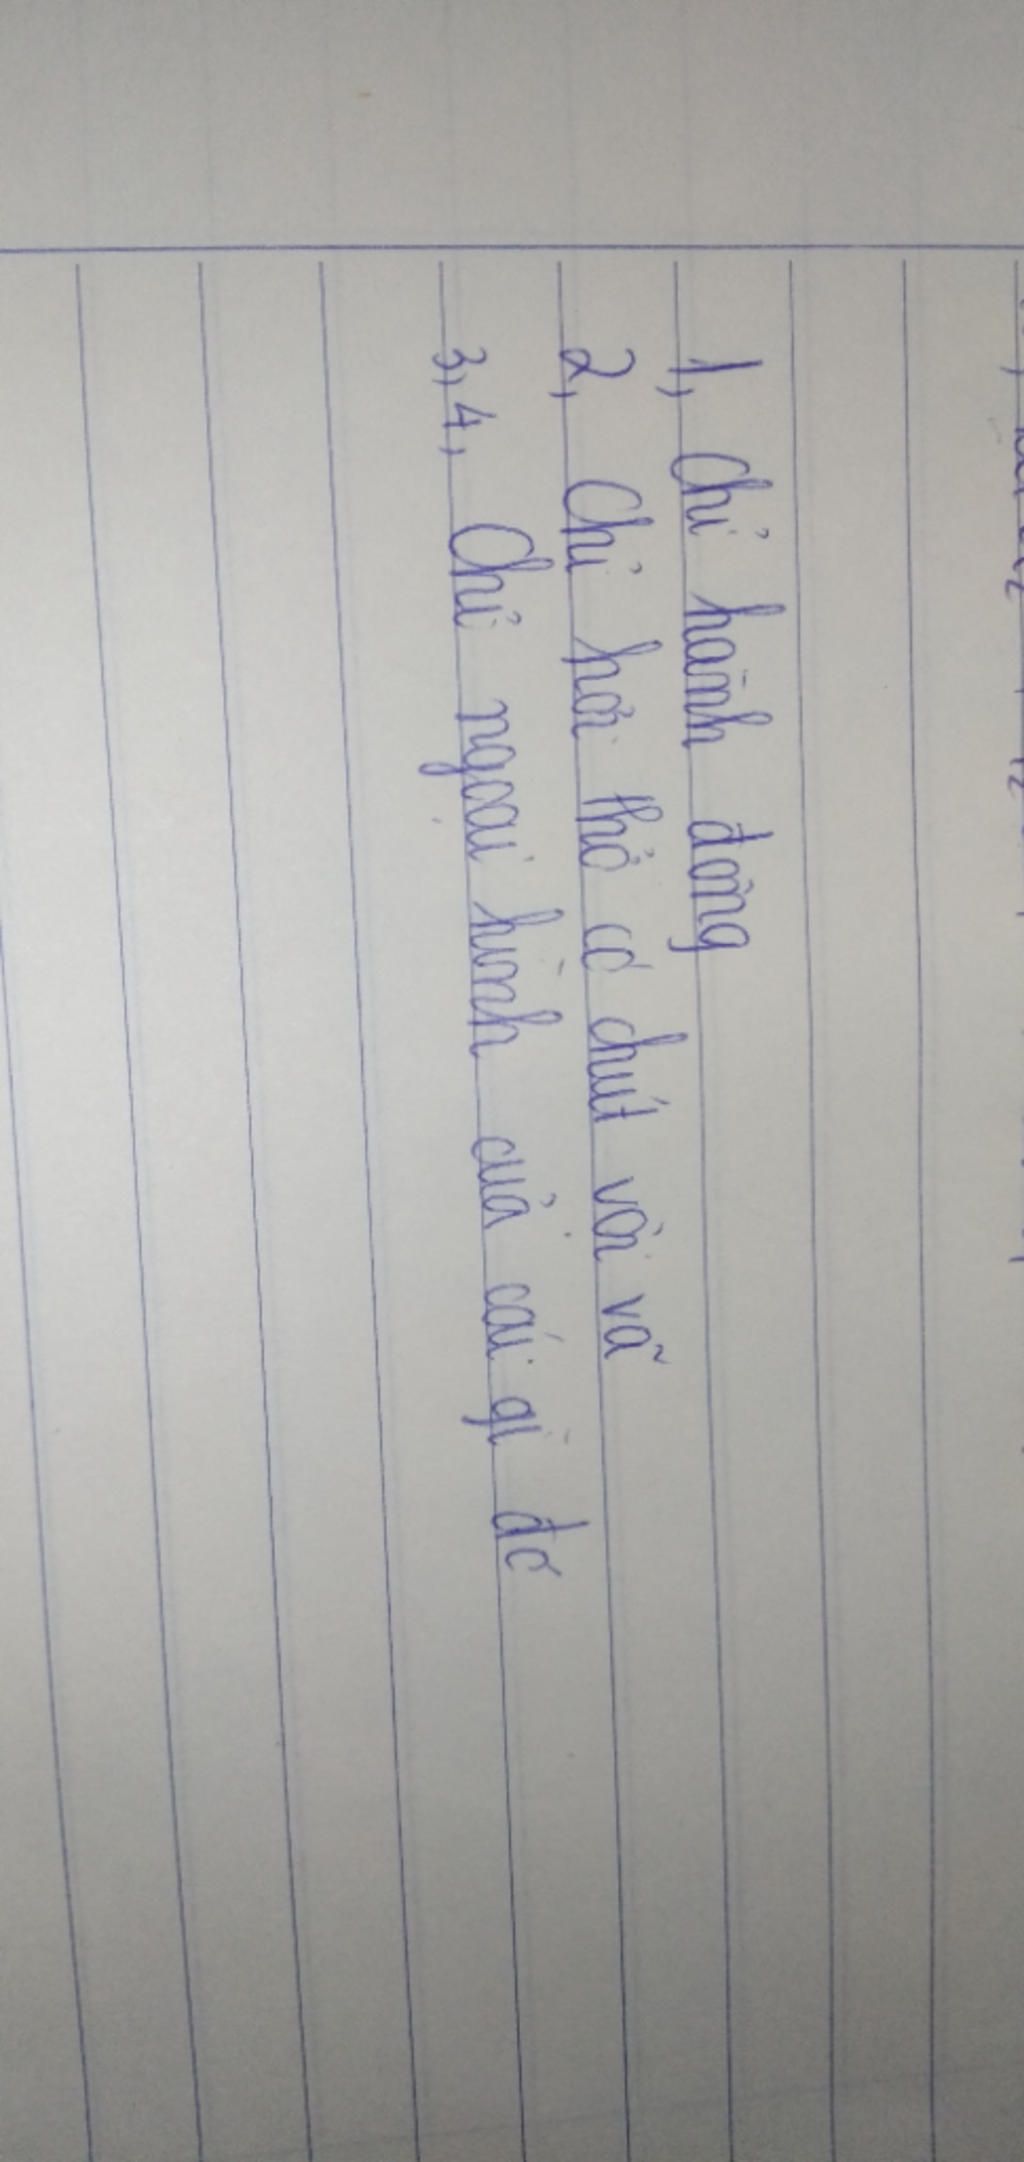 1, Chỉ hành động
2, Chỉ hơi thở có chút vội vã
3, 4, Chỉ ngoại hình của cái gì đó